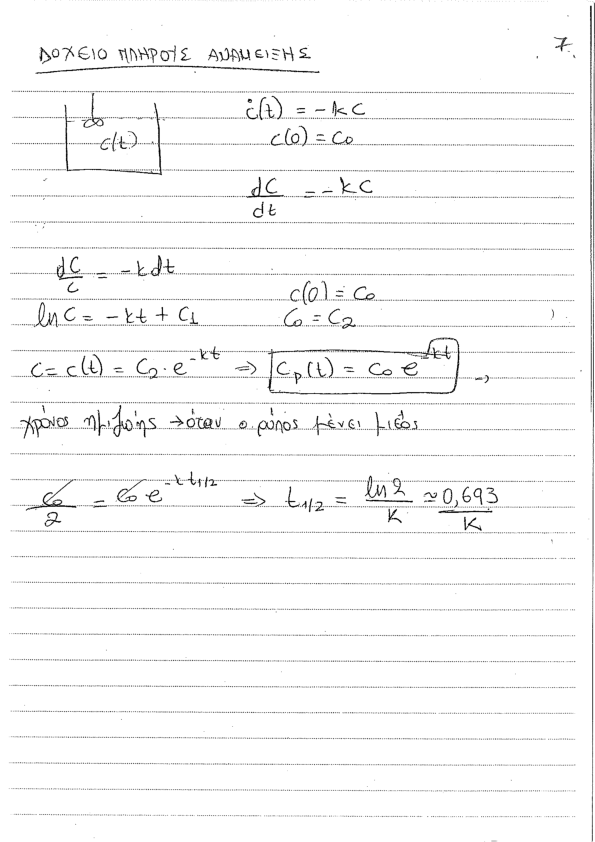 7.
ΔΟΧΕΙΟ ΠΛΗΡΟΥΣ ΑΝΑΜΕΙΞΗΣ
c(t)
ċ(t) = -kC
c(0) = C₀
dC/dt = -kC
dC/C = -kdt
c(0) = C₀
lnC = -kt + C₁
C₀ = C₂
C = c(t) = C₂·e^-kt => Cp(t) = C₀ e^-kt →
χρόνος ημιζωής → όταν ο ρύπος μένει μισός
C₀/2 = C₀ e^-k t₁/₂ => t₁/₂ = ln2/K ≃ 0,693/K